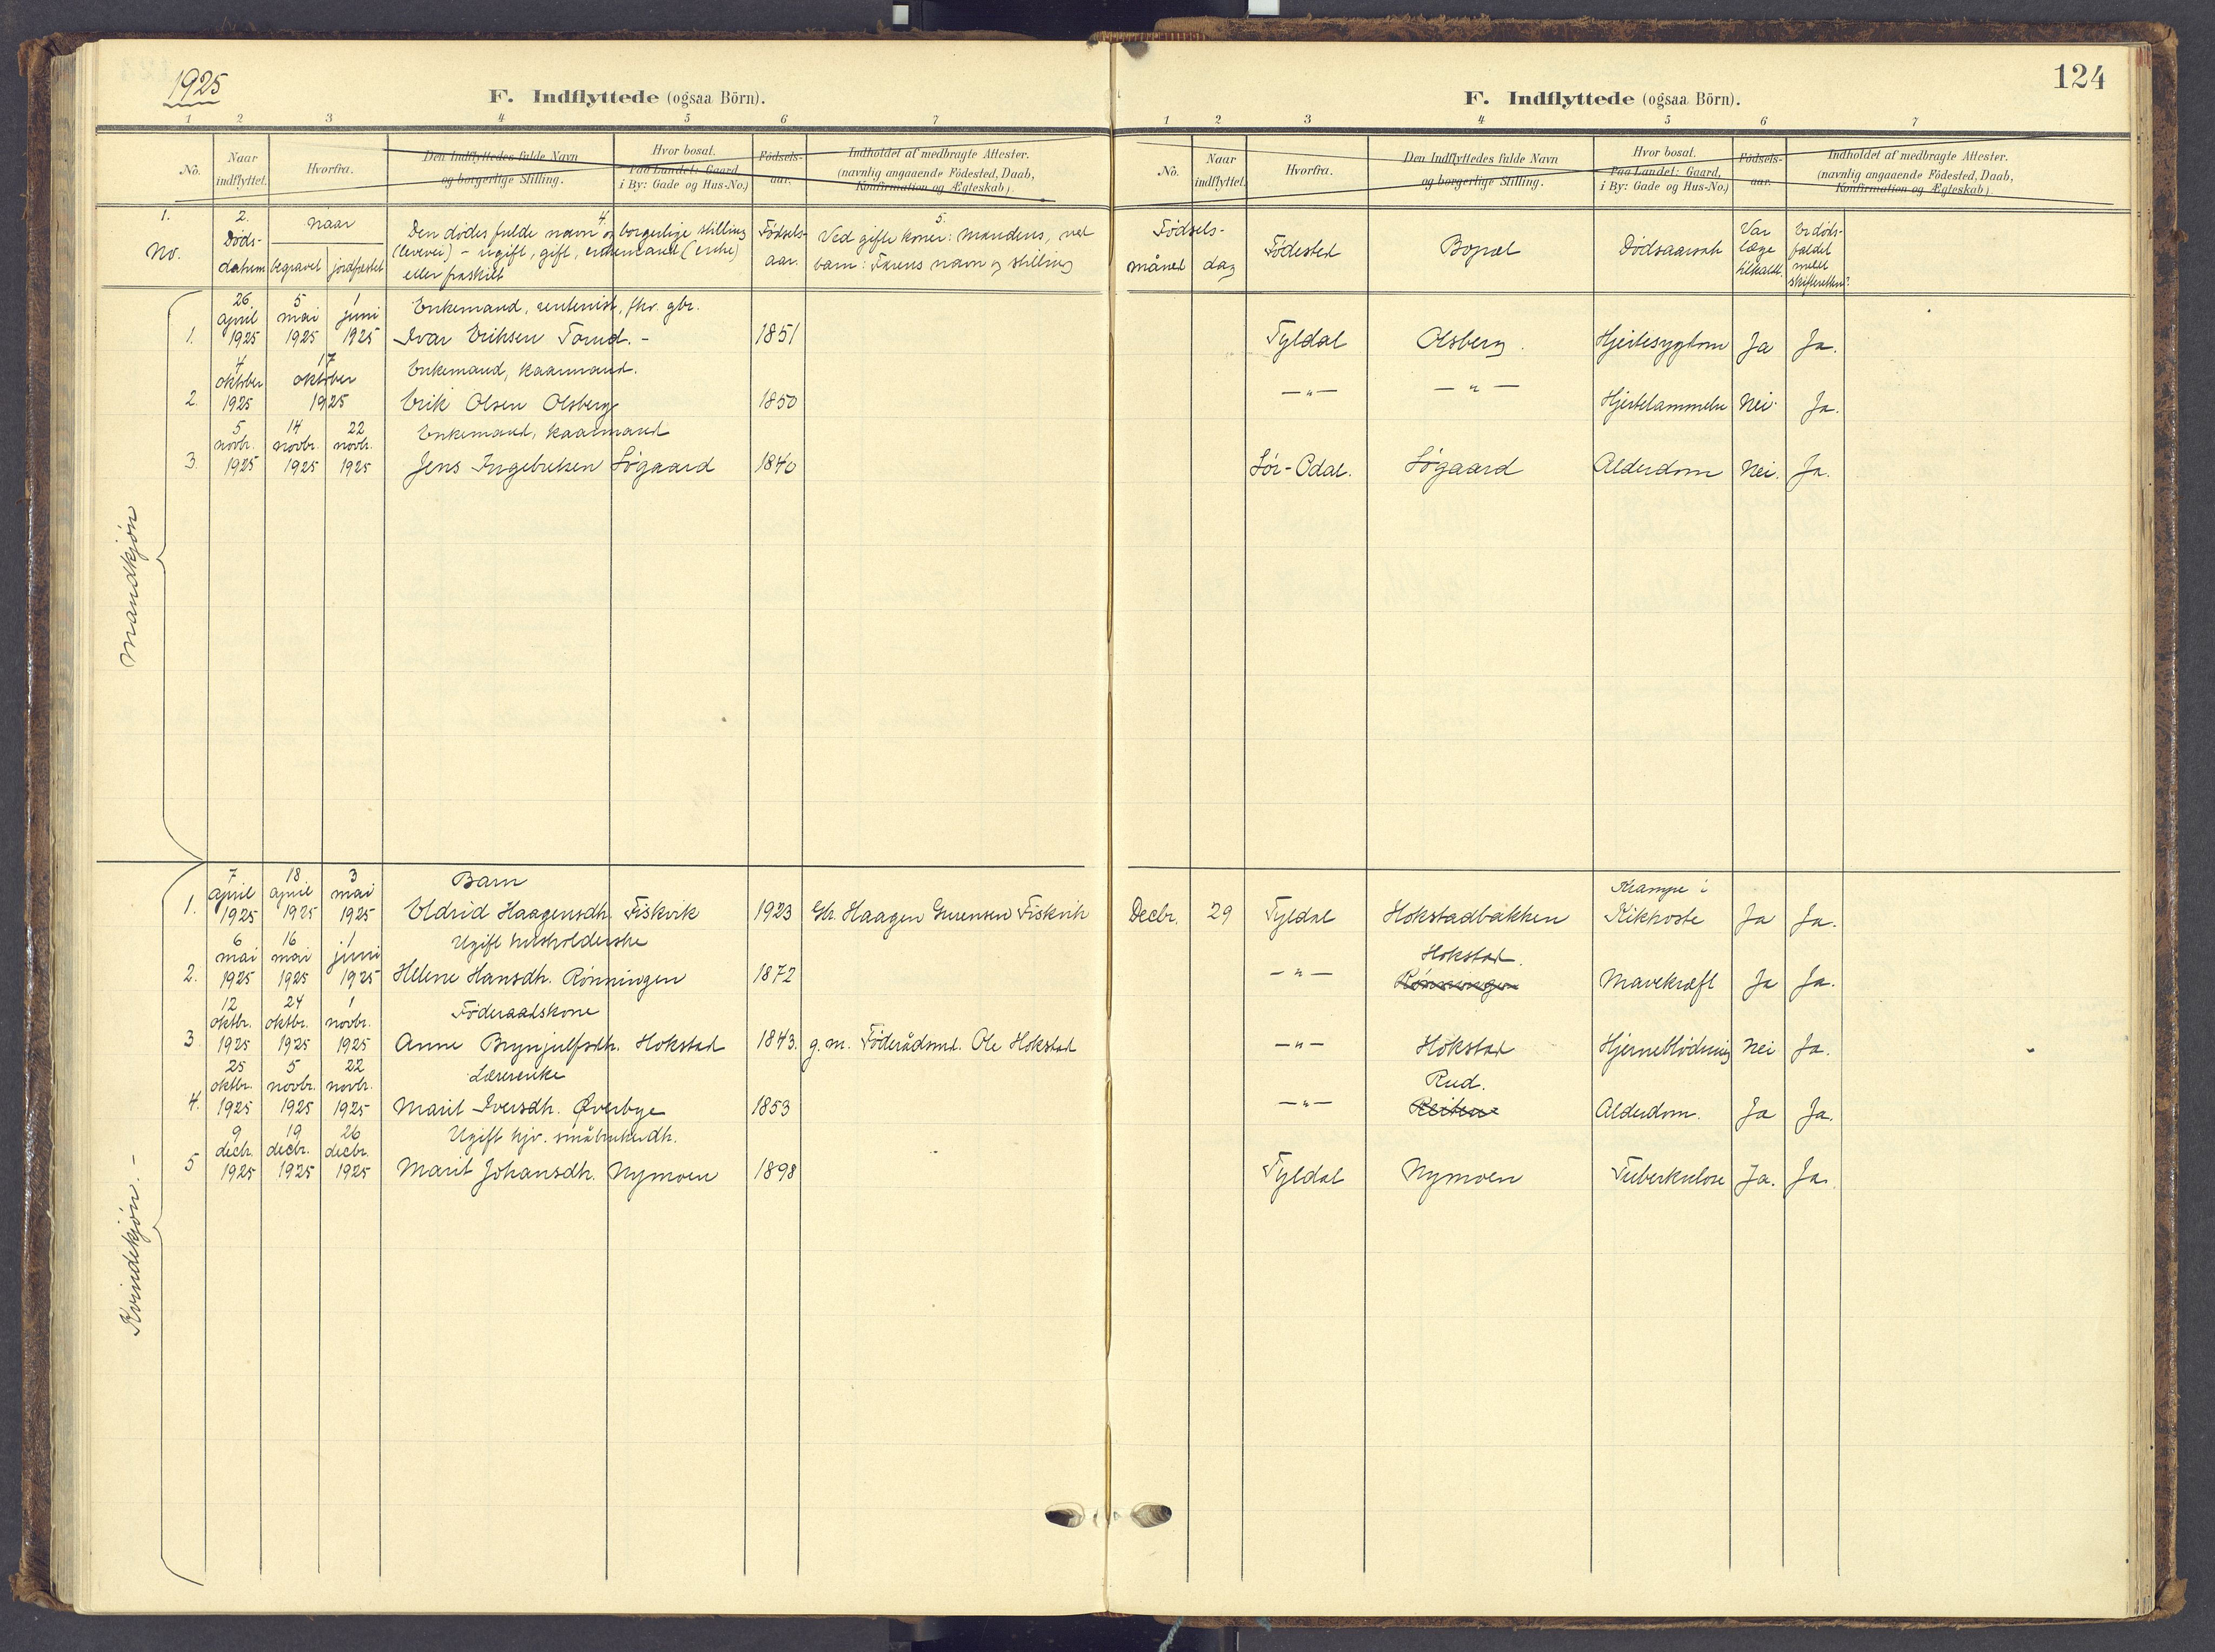 1925
F. Indflyttede (ogsaa Börn).
1 2 3 4 5 6 7
No. Naar indflyttet. Hvorfra. Den Indflyttedes fulde Navn og borgerlige Stilling. Hvor bosat. Paa Landet: Gaard, i By: Gade og Hus-No.) Födsels-aar. Indholdet af medbragte Attester. (navnlig angaaende Födested, Daab, Konfirmation og Ægteskab).
1. 2. 4. 5.
No. Döds-datum naar begravet jordfæstet Den dödes fulde navn og borgerlige stilling (levevei) – ugift, gift, enkemand (enke) eller fraskilt Födsels-aar. Ved gifte koner: Mandens, ved barn: Farens navn og stilling
Mandkjøn
1. 26 april 1925 5 mai 1925 1 juni 1925 Enkemand, rentenist, fhv. gbr.
Ivar Eriksen Torud. - 1851
2. 4 oktober 1925 17 oktober 1925 Enkemand, kaarmand.
Erik Olsen Olsberg 1850
3. 5 novbr. 1925 14 novbr. 1925 22 novbr. 1925 Enkemand, kaarmand
Jens Ingebretsen Sögaard 1840
Kvindekjøn. -
1. 7 april 1925 18 april 1925 3 mai 1925 Barn
Eldrid Haagensdh. Fiskvik 1923 Gbr. Haagen Fiskvik
2. 6 mai 1925 16 mai 1925 1 juni 1925 Ugift husholderske
Helene Hansdh. Rönningen 1872
3. 12 oktbr. 1925 24 oktbr. 1925 1 novbr. 1925 Föderaadskone
Anne Brynjulfsdh. Hokstad 1843. g. m. Föderådsmd. Ole Hokstad
4. 25 oktbr. 1925 5 novbr. 1925 22 novbr. 1925 Lærerenke
Marit Iversdh. Øverbye 1853
5 9 decbr. 1925 19 decbr. 1925 26 decbr. 1925 Ugift hjv. småbrukerdh.
Marit Johansdh. Nymoen 1898
124
F. Indflyttede (ogsaa Börn).
1 2 3 4 5 6 7
No. Naar indflyttet. Hvorfra. Den Indflyttedes fulde Navn og borgerlige Stilling. Hvor bosat. Paa Landet: Gaard, i By: Gade og Hus-No.) Födsels-aar. Indholdet af medbragte Attester. (navnlig angaaende Födested, Daab, Konfirmation og Ægteskab)
Födsels-måned dag Födested Bopæl Dödsaarsak Var læge tilkaldt. Er döds-faldet meldt skifteretten?
Tyldal Olsberg. Hjertesygdom Ja Ja.
—„— —„— Hjertelammelse Nei. Ja.
Sör-Odal. Sögaard Alderdom Nei. Ja.
Decbr. 29 Tyldal Hokstadbakken Krampe i Kikhoste Ja Ja.
—„— Hokstad. Rönningen Mavekræft Ja Ja.
—„— Hokstad Hjerneblödning Nei Ja.
—„— Rud. Alderdom. Ja Ja.
Tyldal Nymoen Tuberkulose Ja. Ja.